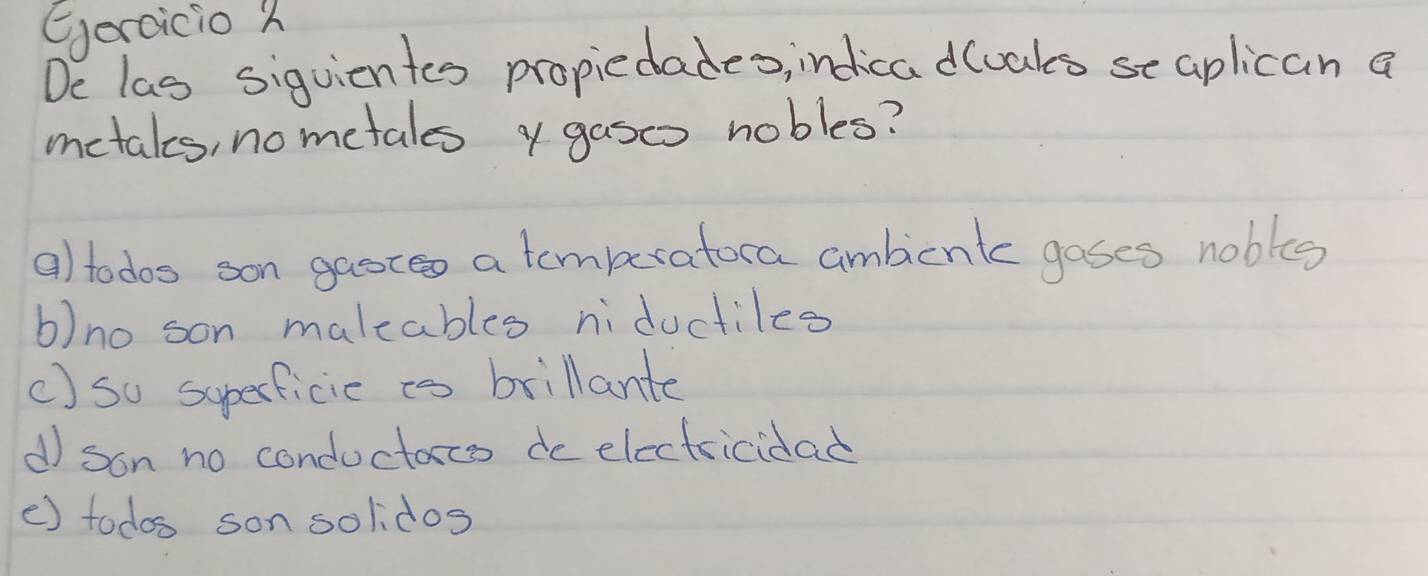 Ejercicio 2
De las siguientes propiedades, indica ¿Cuales se aplican a
metales, no metales y gases nobles?
a) todos son gases a temperatura ambiente gases nobles
b) no son maleables ni ductiles
c) su superficie es brillante
d) son no conductores de electricidad
e) todos son solidos